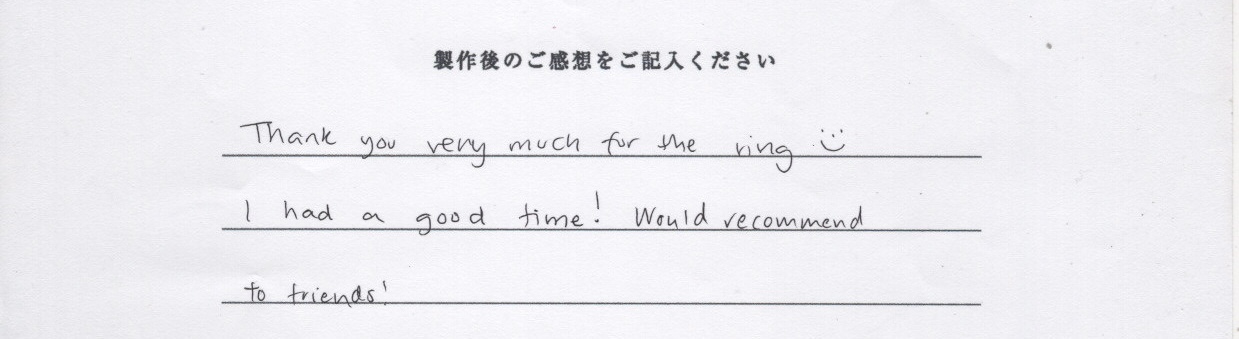 製作後のご感想をご記入ください
Thank you very much for the ring :)
I had a good time! Would recommend
to friends!